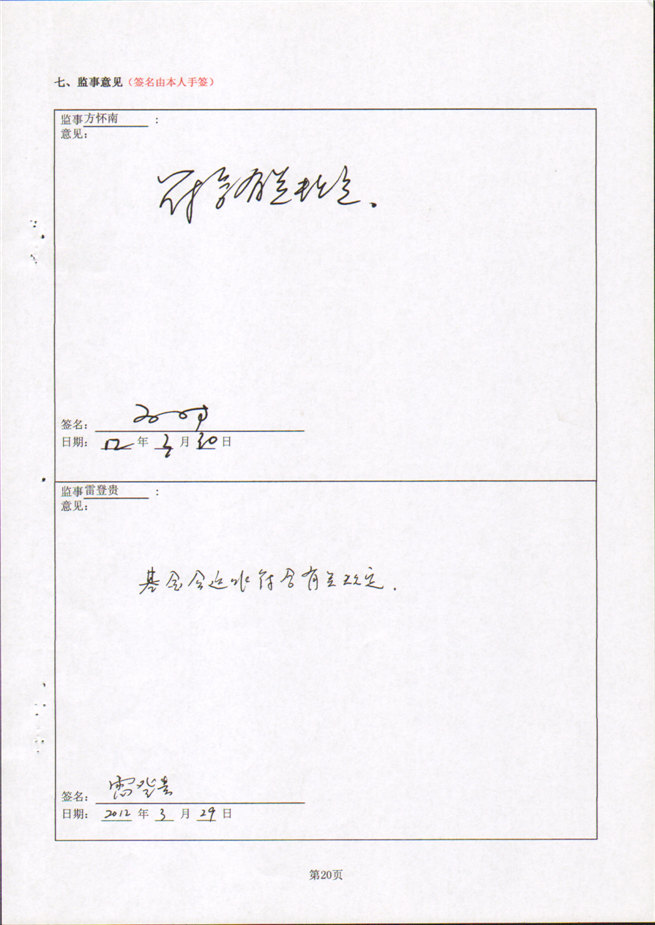 七、监事意见（签名由本人手签）
监事方怀南：
意见：
符合有关规定。
签名：
日期：12年3月30日
监事雷登贵：
意见：
基金会运作符合有关规定.
签名：雷登贵
日期：2012年3月29日
第20页